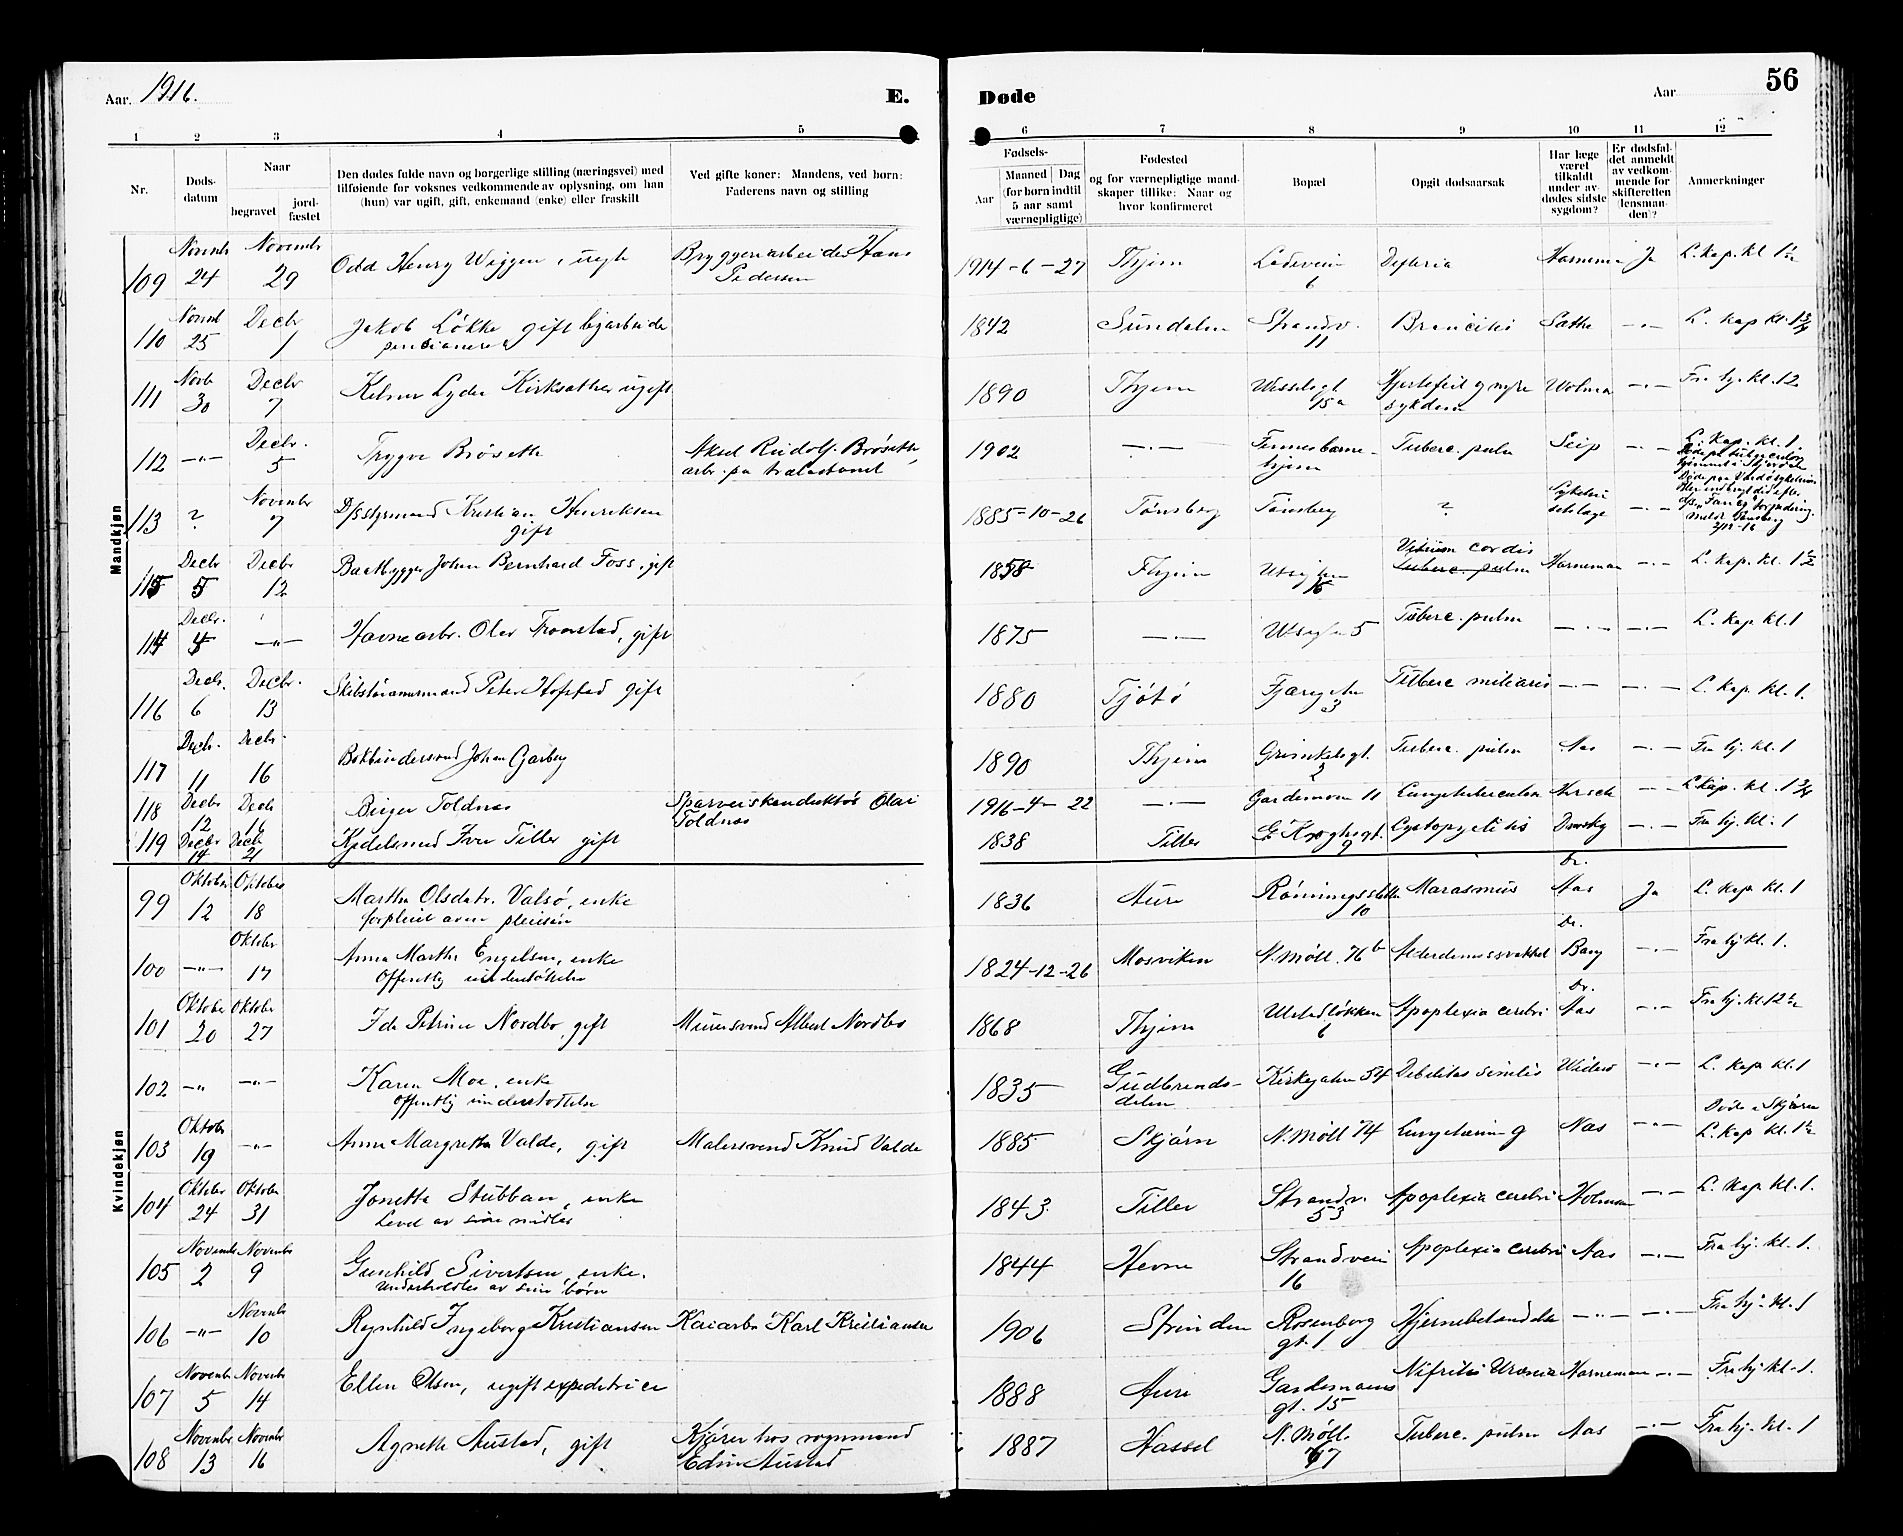 Aar. 1916.
E.
Døde
Aar
56
1 2 3 4 5 6 7 8 9 10 11 12
Nr.
Døds-
datum
Naar
begravet
jord-
fæstet
Den dødes fulde navn og borgerlige stilling (næringsvei) med
tilføiende for voksnes vedkommende av oplysning, om han
(hun) var ugift, gift, enkemand (enke) eller fraskilt
Ved gifte koner: Mandens, ved børn:
Faderens navn og stilling
Fødsels-
Aar
Maaned
Dag
(for børn indtil
5 aar samt
værnepligtige)
Fødested
og for værnepligtige mand-
skaper tillike: Naar og
hvor konfirmeret
Bopæl
Opgit dødsaarsak
Har læge
været
tilkaldt
under av-
dødes sidste
sygdom?
Er dødsfal-
det anmeldt
av vedkom-
mende for
skifteretten
(lensman-
den)?
Anmerkninger
Mandkjøn
109 Novembr 24 Novembr 29 Odd Henry Wiggen, ugft Bryggeriarbeider Hans Pedersen 1914-6-27 Thjem Ladeveien 6 Harneman Ja L. kap. kl. 1½
110 Novmb 25 Decbr 1 Jakob Løkke gift 1842 Sundalen Strandv. 11 -"- L. kap kl. 1¾
111 Novb 30 Decbr 7 Lyder Kirksæther ugift 1890 Thjem 15a Hjertefeil og nyre sykdom -"- Fra hj. kl. 12
112 -"- Decbr. 5 Trygve Brøseth Aksel Rudolf Brøseth, arb. paa 1902 -"- Tuberc. pulm Seip -"- L. kap. kl. 1.
113 ? November 7 Kristian Henriksen gift 1885-10-26 Tønsberg Tønsberg ? -"-
115 Decbr 5 Decbr 12 Baatbygger Johan Bernhard Foss, gift 1858 Thjem Vitium cordis Harneman -"- L. kap. kl. 1½
114 Decbr. 4 -"- Havnearbr. Olav Tronstad, gift 1875 -"- 5 Tuberc. pulm -"- -"- L. kap kl. 1
116 Decbr. 6 Decbr. 13 Skibstømmermand Peter Hofstad gift 1880 Tjøtø Fjæregaten 3 Tuberc miliaris -"- -"- L. kap. kl. 1.
117 Decbr. 11 Decbr. 16 Bokbindersvend Johan Gjærberg 1890 Thjem Tuberc. pulm Aas -"- Fra hj. kl. 1
118 Decbr 12 Decbr 16 Birger Toldnes Sporveiskonduktør Olai Toldnes 1916-4-22 -"- Gardemoen 11 Lungetuberculose -"- L kap. kl. 1¾
119 Decbr 14 Decbr 21 Kjedelsmed Iver Tiller gift 1838 Tiller E Kroghsgt. 9 Cystopyelitis -"- Fra hj. kl. 1
Kvindekjøn
99 Oktober 12 Oktober 18 Martha Olsdatr. Valsø, enke 1836 Aure Rønningsletten 10 Marasmus Dr. Aas Ja L. kap. kl. 1
100 -"- Oktober 17 Anna Martha Engelsen, enke Offentlig understøttelse 1824-12-26 Mosviken N. Møll. 76b Alderdomssvakhet Dr. Berg -"- Fra hj kl. 1.
101 Oktober 20 Oktober 27 Ida Petrine Nordbo, gift Murersvend Albert Nordbo 1868 Thjem 6 Apoplexia cerebri Dr. Aas -"- Fra hj. kl. 12½
102 -"- -"- Karen Moe, enke offentlig understøttelse 1835 Gudbrands-dalen Kirkegaten 54 Debilitas senilis -"- L. kap kl. 1
103 Oktober 19 -"- Anna Margretha Valde, gift Malersvend Knud Valde 1885 Skjørn N. Møll 74 Aas -"- Døde i Skjørn L. kap kl. 1½
104 Oktober 24 Oktober 31 Jonetta Stubban, enke Levet av sine midler 1843 Tiller Strandv. 53 Apoplexia cerebri -"- L. kap. kl. 1.
105 November 2 Novembr 9 Gunhild Sivertsen, enke. Underholdtes av sine børn 1844 Hevne Strandveien 16 Apoplexia cerebri Aas -"- Fra hj. kl. 1.
106 -"- Novembr 10 Ragnhild Ingeborg Kristiansen Kaiarbr Karl Kristiansen 1906 Strinden Rosenborg gt. 1 Hjernebetændelse -"- -"- Fra hj. kl. 1
107 Novembr 5 Novembr 14 Ellen Olsen, ugift expeditrice 1888 Aure Gardemoens gt. 15 Nefritis Uræmia Harneman -"- Fra hj kl. 1.
108 Novembr 13 Novembr 16 Agnethe Austad, gift Kjører hos vognmand Edvin Austad 1887 Hassel N. Møll. 77 Tuberc. pulm Aas -"- Fra hj. kl. 1